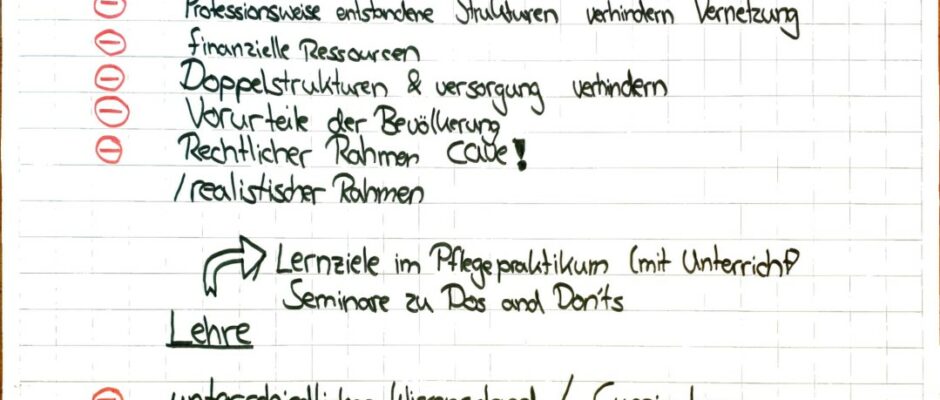 ⊖ Professionsweise entstandene Strukturen verhindern Vernetzung
⊖ finanzielle Ressourcen
⊖ Doppelstrukturen & versorgung verhindern
⊖ Vorurteile der Bevölkerung
⊖ Rechtlicher Rahmen CAVE!
/realistischer Rahmen
Lernziele im Pflegepraktikum (mit Unterricht)
Seminare zu Dos and Don'ts
Lehre